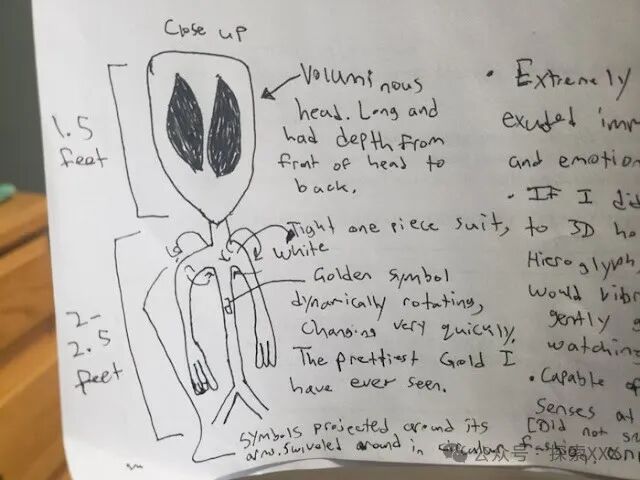 Close up
1.5
feet
Voluminous
head. Long and
had depth from
front of head to
back.
Tight one piece suit,
white
Golden symbol
dynamically rotating,
Changing very quickly.
The prettiest Gold I
have ever seen.
2-
2.5
feet
Symbols projected around its
arms. Swiveled around in circular
• Extremely
exuded
and emotion
• If I did
to 3D
Hieroglyph
would
gently
watching
• Capable of
Senses at
(Did not
公众号 · 探索XXX